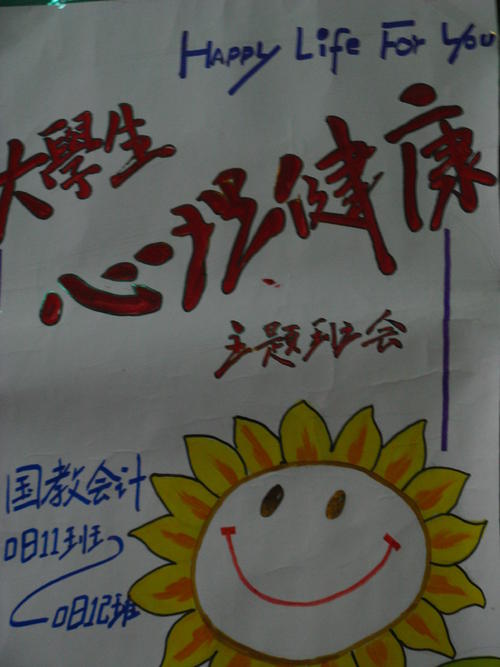 HAPPY Life For You
大學生
心理健康
主题班会
国教会计
0811班
0812班